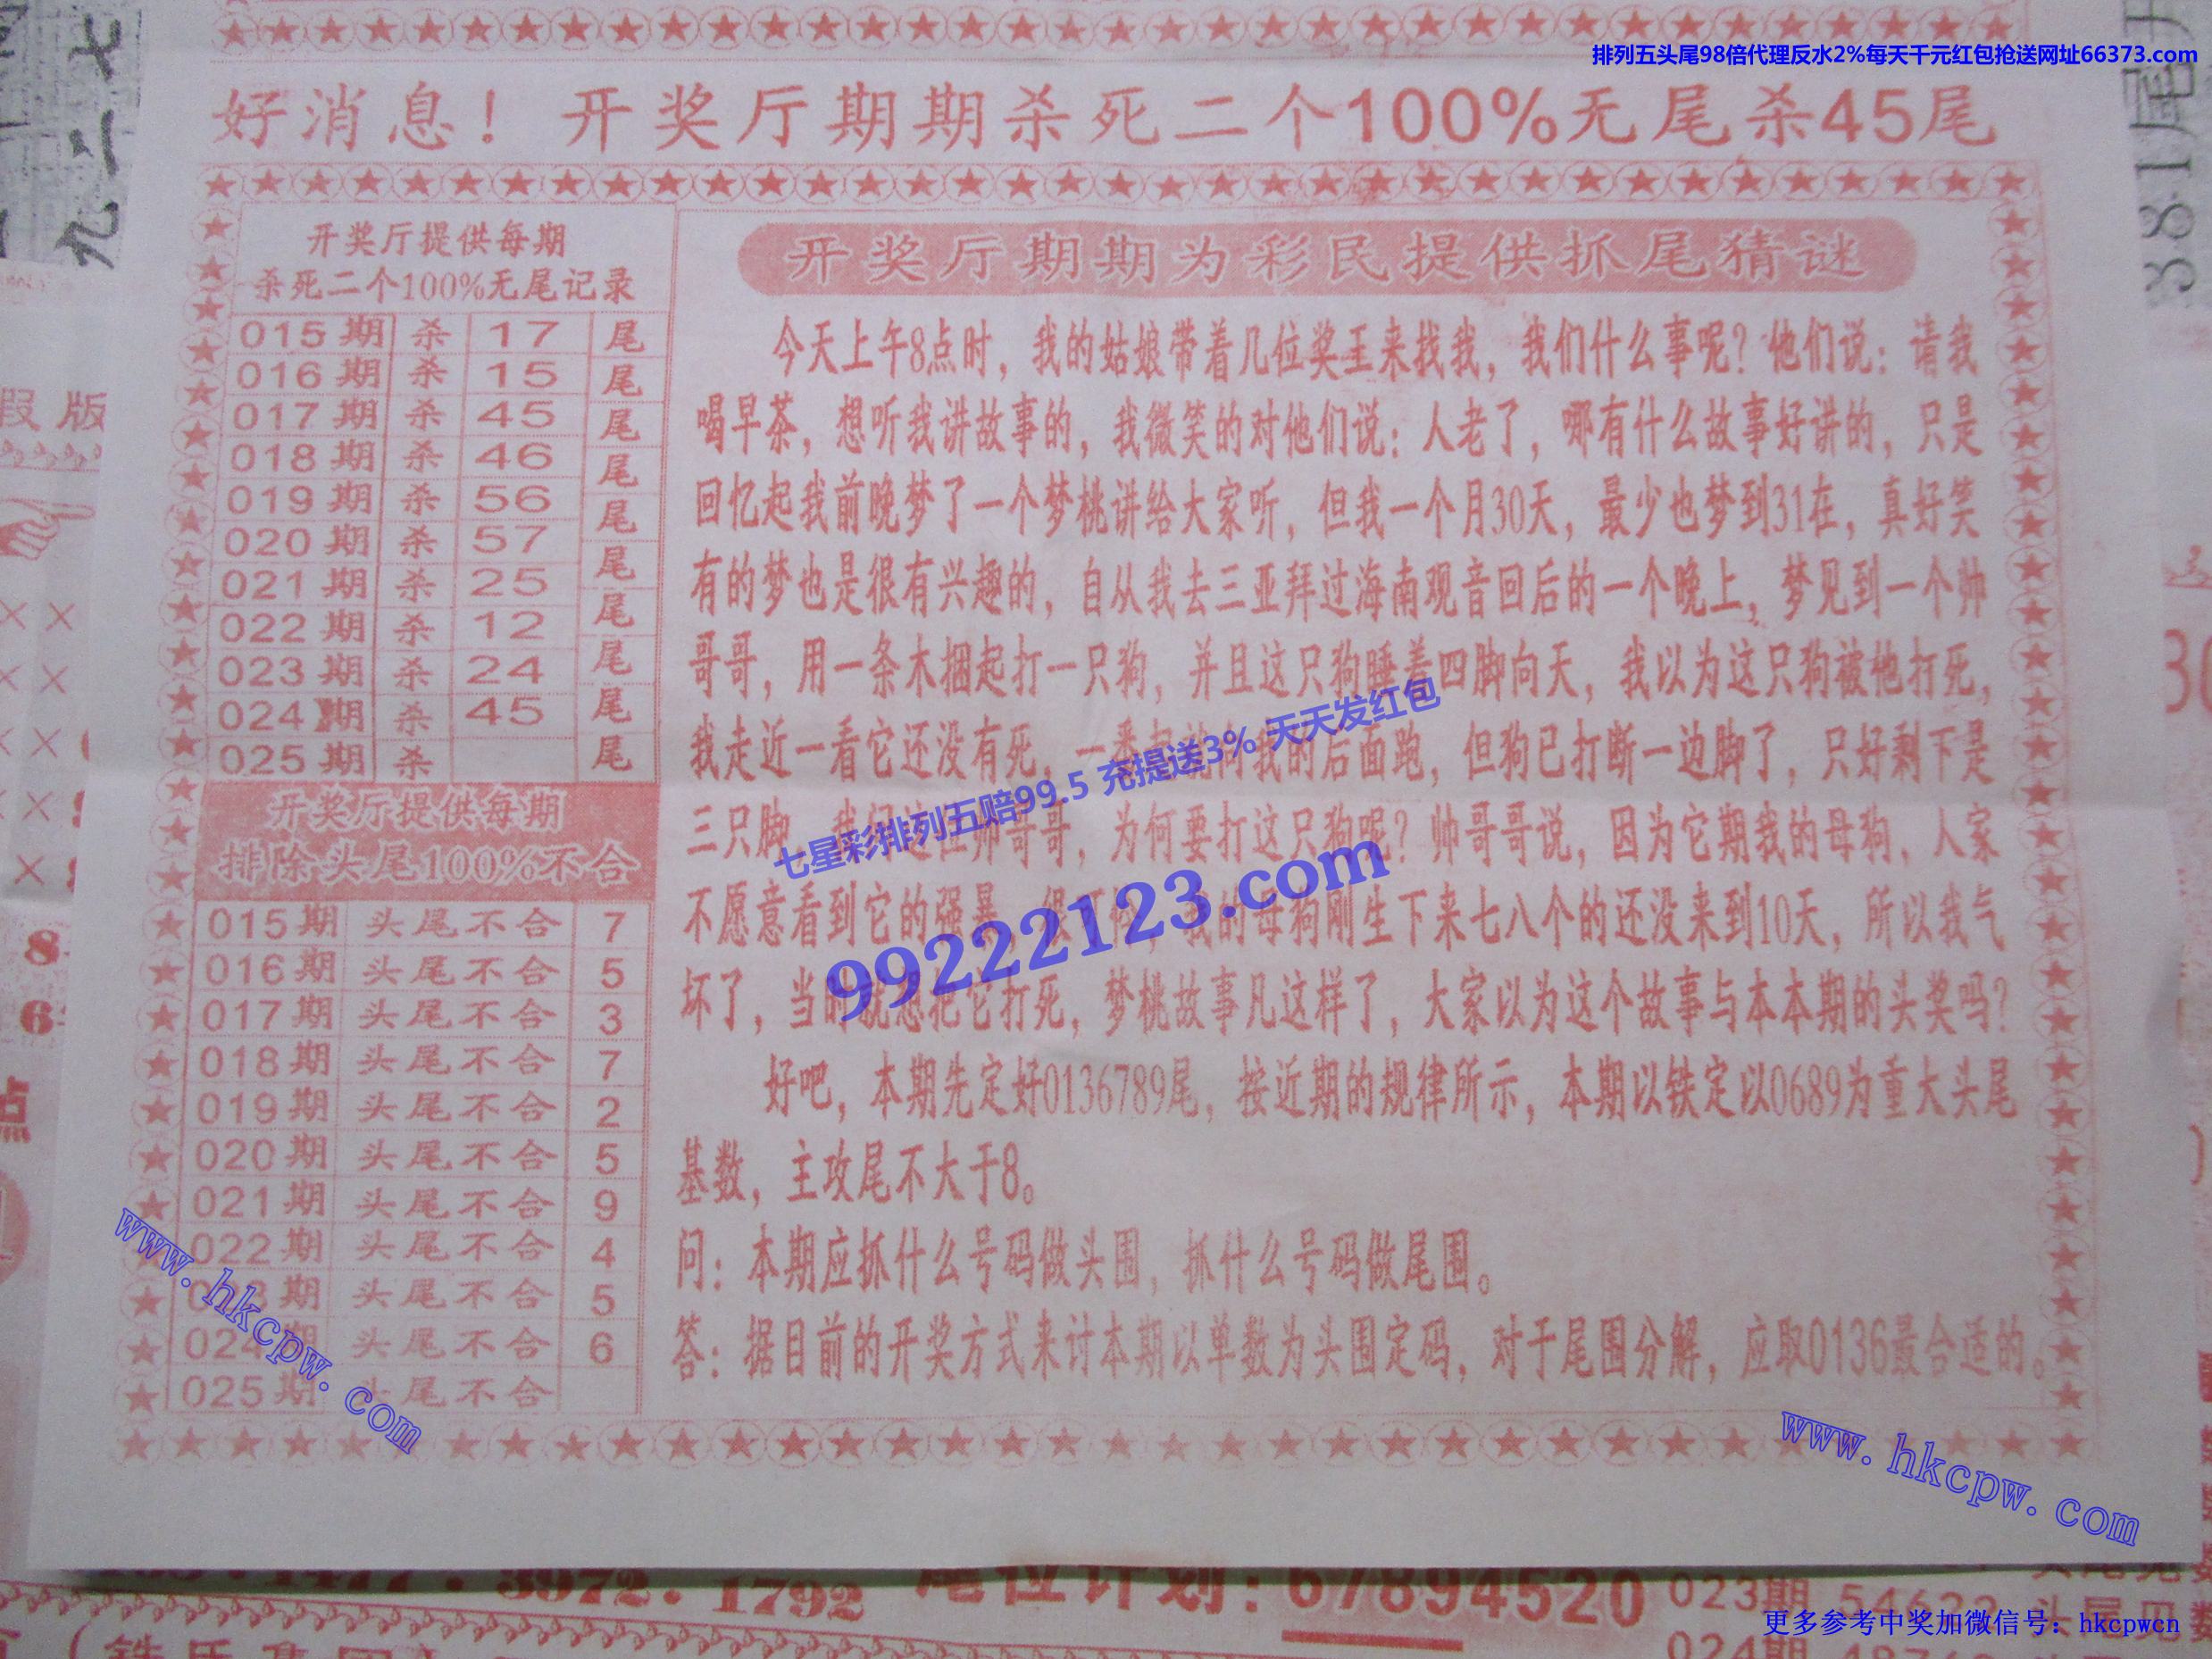 排列五头尾98倍代理反水2%每天千元红包抢送网址66373.com
好消息！开奖厅期期杀死二个100%无尾杀45尾
开奖厅提供每期
杀死二个100%无尾记录
015期 杀 17 尾
016期 杀 15 尾
017期 杀 45 尾
018期 杀 46 尾
019期 杀 56 尾
020期 杀 57 尾
021期 杀 25 尾
022期 杀 12 尾
023期 杀 24 尾
024期 杀 45 尾
025期 杀 尾
开奖厅提供每期
排除头尾100%不合
015期 头尾不合 7
016期 头尾不合 5
017期 头尾不合 3
018期 头尾不合 7
019期 头尾不合 2
020期 头尾不合 5
021期 头尾不合 9
022期 头尾不合 4
023期 头尾不合 5
024期 头尾不合 6
025期 头尾不合
开奖厅期期为彩民提供抓尾猜谜
今天上午8点时，我的姑娘带着几位奖王来找我，我们什么事呢？他们说：请我
喝早茶，想听我讲故事的，我微笑的对他们说：人老了，哪有什么故事好讲的，只是
回忆起我前晚梦了一个梦桃讲给大家听，但我一个月30天，最少也梦到31在，真好笑
有的梦也是很有兴趣的，自从我去三亚拜过海南观音回后的一个晚上，梦见到一个帅
哥哥，用一条木捆起打一只狗，并且这只狗睡着四脚向天，我以为这只狗被他打死，
我走近一看它还没有死，一番 我的后面跑，但狗已打断一边脚了，只好剩下是
三只脚，我问这位帅哥哥，为何要打这只狗呢？帅哥哥说，因为它期我的母狗，人家
不愿意看到它的强暴，很 我的母狗刚生下来七八个的还没来到10天，所以我气
坏了，当时就想把它打死，梦桃故事凡这样了，大家以为这个故事与本本期的头奖吗？
好吧，本期先定好0136789尾，按近期的规律所示，本期以铁定以0689为重大头尾
基数，主攻尾不大于8。
问：本期应抓什么号码做头围，抓什么号码做尾围。
答：据目前的开奖方式来计本期以单数为头围定码，对于尾围分解，应取0136最合适的。
七星彩排列五赔99.5 充提送3% 天天发红包
99222123.com
www.hkcpw.com
www.hkcpw.com
九二七
381尾
假版
3972.1792
尾位计划：67894520
023期 54622 头尾见数
024期
更多参考中奖加微信号：hkcpwcn